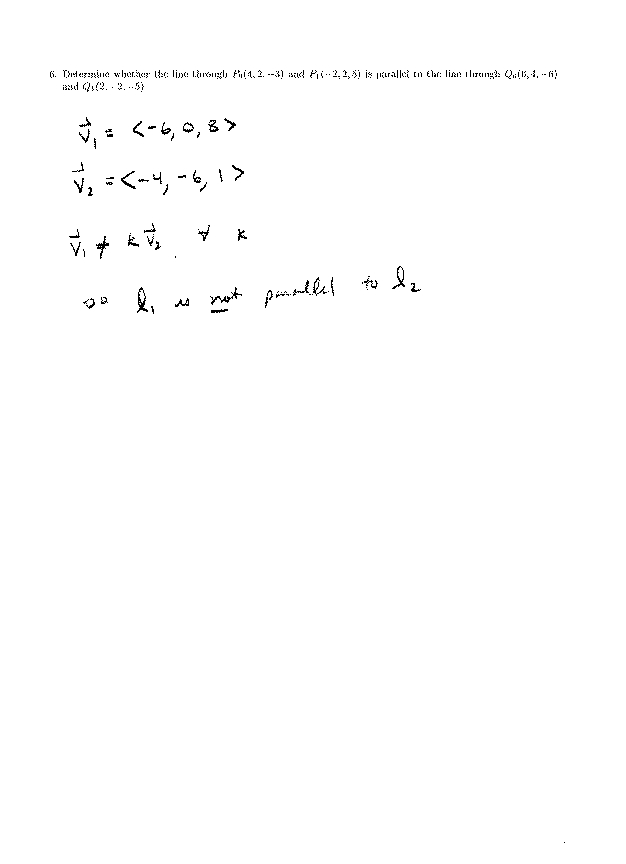 6. Determine whether the line through P₀(4, 2, −3) and P₁(−2, 2, 5) is parallel to the line through Q₀(6, 4, −6)
and Q₁(2, −2, −5)
v⃗₁ = <-6, 0, 8>
v⃗₂ = <-4, -6, 1>
v⃗₁ ≠ k v⃗₂ ∀ k
so l₁ is not parallel to l₂